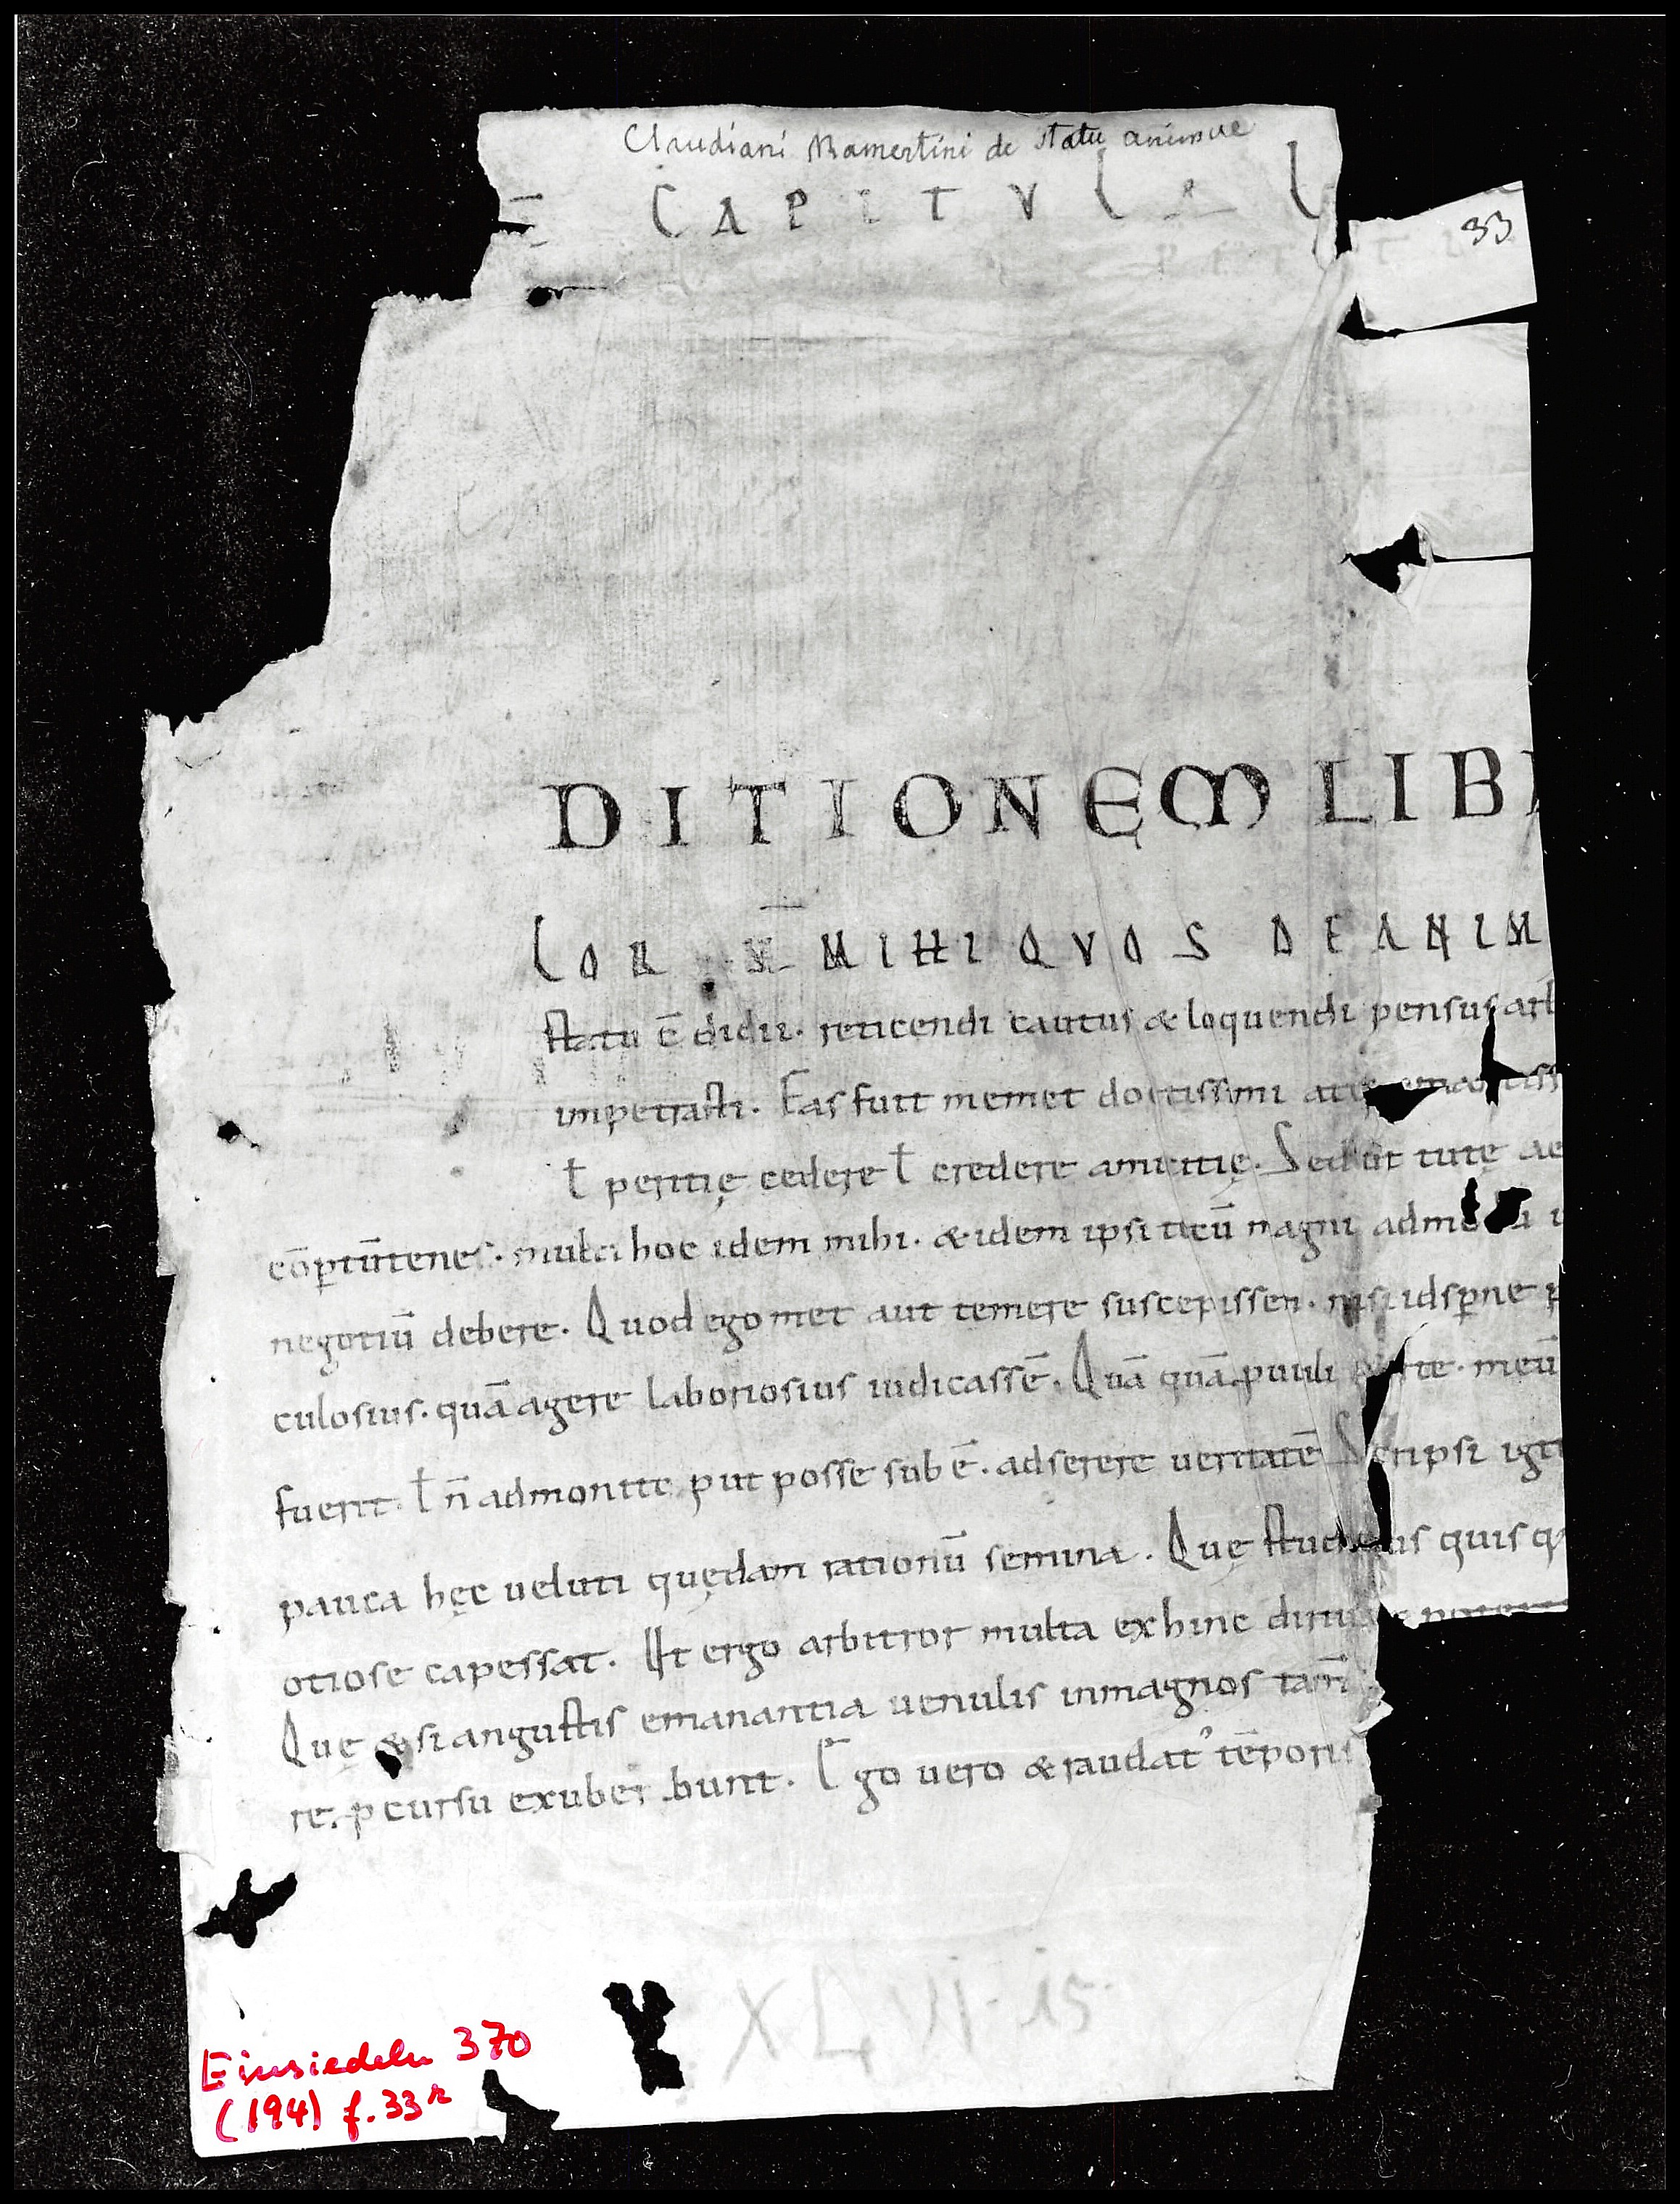 Claudiani Mamertini de statu animae
CAPITVLA L
33
DITIONEM LIB
LOR MIHI QVOS DE ANIM
statu ē didii. reticendi cautus & loquendi pensus
impetrasti. Fas fuit memet doctissimi
ƚ peritię cedere ƚ credere amicitię. Sed ut tute
cōptū tenes. multi hoc idem mihi. & idem ipsi tecū magni
negotiū debere. Quod egomet aut temere suscepissem. nisi id sp̄ne
culosius. quā agere laboriosius iudicassē. Quā quā puuli meū
fuerit. ƚ n̄ admonitte put posse sub ē. adserere veritatē Scripsi
pauca hęc veluti quędam rationū semina. Quę quis
otiose capessat. Ut ergo arbitror multa exhinc
Quę & si angustis emanantia uenulis inmagnos tam̄
re. pcursu exuber bunt. Ego vero & raudat' tēporis
XL VII. 15.
Einsiedeln 370
(194) f. 33r